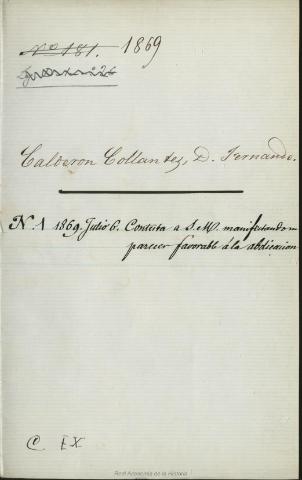 Nº 181. 1869
Calderon Collantes, D. Fernando.
N. 1 1869. Julio 6. Contesta a S. M. manifestando su
parecer favorable á la abdicacion
C. EX
Real Academia de la Historia